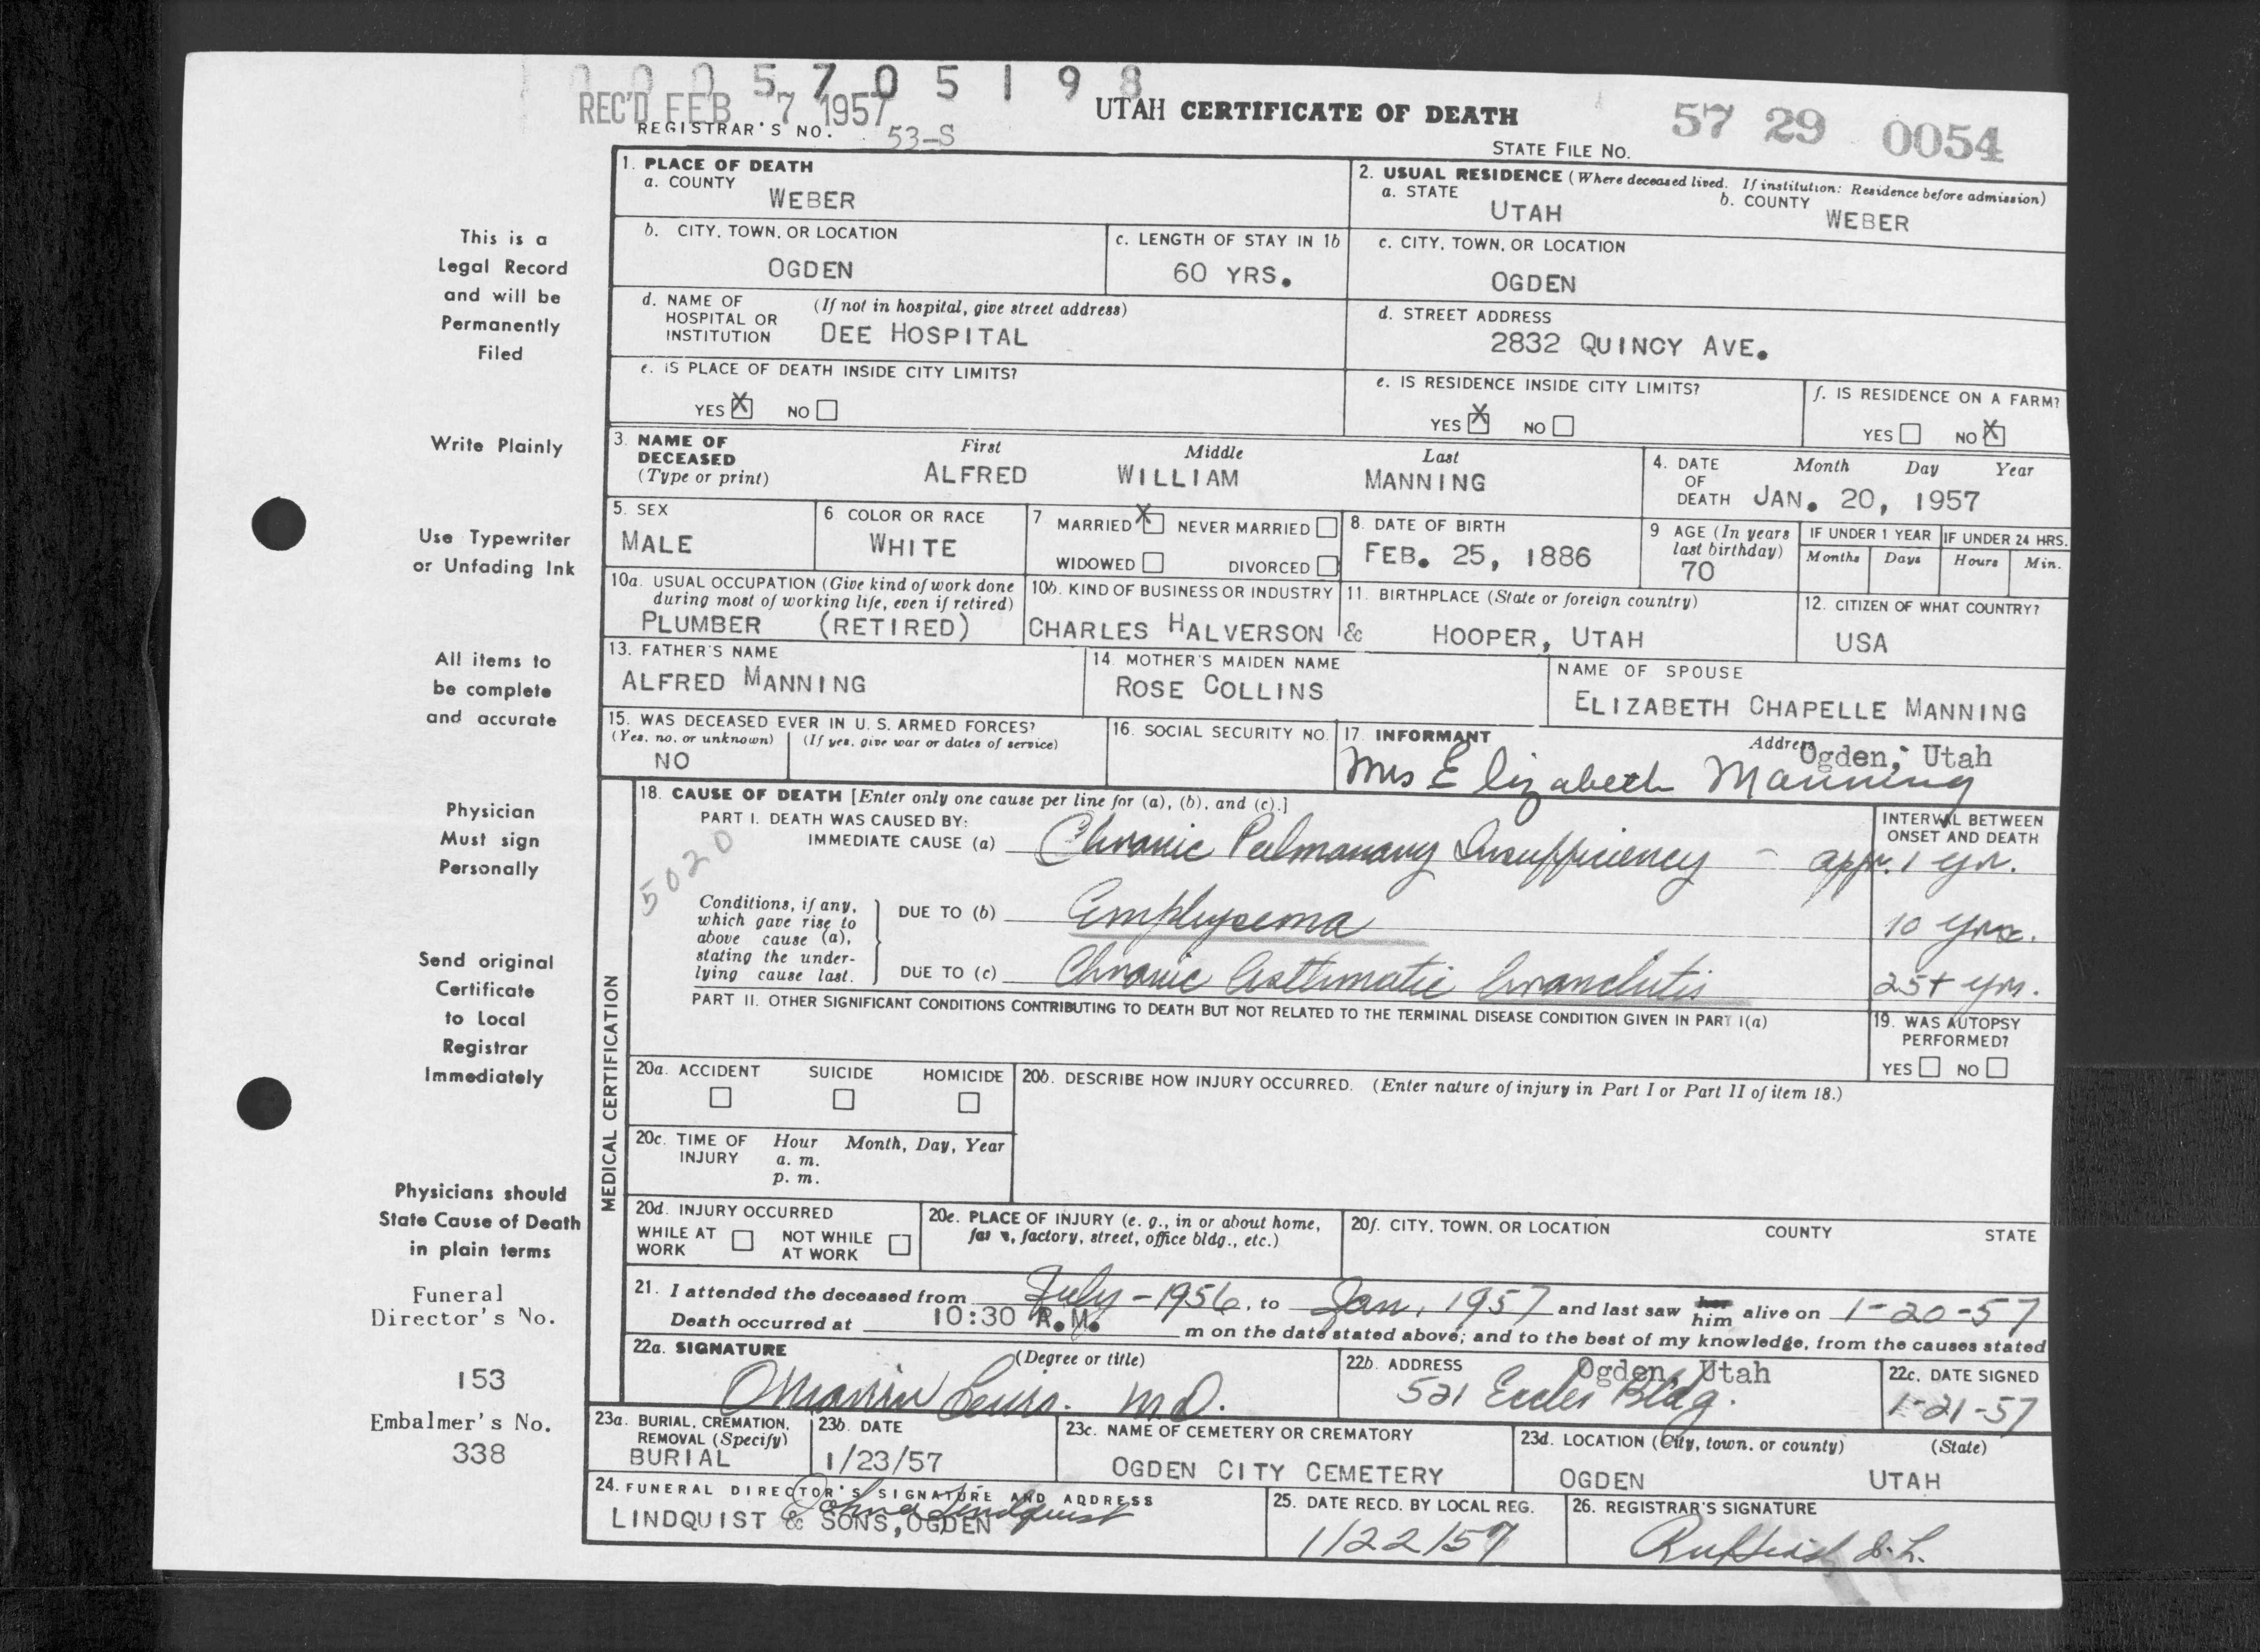 0005705198
REC'D FEB 7 1957
UTAH CERTIFICATE OF DEATH
57 29 0054
REGISTRAR'S NO. 53-S
STATE FILE NO.
This is a
Legal Record
and will be
Permanently
Filed
Write Plainly
Use Typewriter
or Unfading Ink
All items to
be complete
and accurate
Physician
Must sign
Personally
Send original
Certificate
to Local
Registrar
Immediately
Physicians should
State Cause of Death
in plain terms
Funeral
Director's No.
153
Embalmer's No.
338
1. PLACE OF DEATH
a. COUNTY
WEBER
2. USUAL RESIDENCE (Where deceased lived. If institution: Residence before admission)
a. STATE b. COUNTY
UTAH WEBER
b. CITY, TOWN, OR LOCATION
OGDEN
c. LENGTH OF STAY IN 1b
60 YRS.
c. CITY, TOWN, OR LOCATION
OGDEN
d. NAME OF (If not in hospital, give street address)
HOSPITAL OR
INSTITUTION DEE HOSPITAL
d. STREET ADDRESS
2832 QUINCY AVE.
e. IS PLACE OF DEATH INSIDE CITY LIMITS?
YES X NO
e. IS RESIDENCE INSIDE CITY LIMITS?
YES X NO
f. IS RESIDENCE ON A FARM?
YES NO X
3. NAME OF First Middle Last
DECEASED
(Type or print) ALFRED WILLIAM MANNING
4. DATE Month Day Year
OF
DEATH JAN. 20, 1957
5. SEX
MALE
6 COLOR OR RACE
WHITE
7 MARRIED X NEVER MARRIED
WIDOWED DIVORCED
8. DATE OF BIRTH
FEB. 25, 1886
9 AGE (In years
last birthday)
70
IF UNDER 1 YEAR
Months Days
IF UNDER 24 HRS.
Hours Min.
10a. USUAL OCCUPATION (Give kind of work done
during most of working life, even if retired)
PLUMBER (RETIRED)
10b. KIND OF BUSINESS OR INDUSTRY
CHARLES HALVERSON &
11. BIRTHPLACE (State or foreign country)
HOOPER, UTAH
12. CITIZEN OF WHAT COUNTRY?
USA
13. FATHER'S NAME
ALFRED MANNING
14. MOTHER'S MAIDEN NAME
ROSE COLLINS
NAME OF SPOUSE
ELIZABETH CHAPELLE MANNING
15. WAS DECEASED EVER IN U. S. ARMED FORCES?
(Yes, no, or unknown) (If yes, give war or dates of service)
NO
16. SOCIAL SECURITY NO.
17. INFORMANT Address
Ogden, Utah
Mrs Elizabeth Manning
MEDICAL CERTIFICATION
18. CAUSE OF DEATH [Enter only one cause per line for (a), (b), and (c).]
PART I. DEATH WAS CAUSED BY:
IMMEDIATE CAUSE (a) Chronic Pulmonary Insufficiency -
INTERVAL BETWEEN
ONSET AND DEATH
appr. 1 yr.
5020
Conditions, if any,
which gave rise to
above cause (a),
stating the under-
lying cause last.
DUE TO (b) Emphysema 10 yrs.
DUE TO (c) Chronic Asthmatic bronchitis 25+ yrs.
PART II. OTHER SIGNIFICANT CONDITIONS CONTRIBUTING TO DEATH BUT NOT RELATED TO THE TERMINAL DISEASE CONDITION GIVEN IN PART I(a)
19. WAS AUTOPSY
PERFORMED?
YES NO
20a. ACCIDENT SUICIDE HOMICIDE
20b. DESCRIBE HOW INJURY OCCURRED. (Enter nature of injury in Part I or Part II of item 18.)
20c. TIME OF Hour Month, Day, Year
INJURY a. m.
p. m.
20d. INJURY OCCURRED
WHILE AT NOT WHILE
WORK AT WORK
20e. PLACE OF INJURY (e. g., in or about home,
farm, factory, street, office bldg., etc.)
20f. CITY, TOWN, OR LOCATION COUNTY STATE
21. I attended the deceased from July - 1956, to Jan, 1957 and last saw her him alive on 1-20-57
Death occurred at 10:30 A.M. m on the date stated above; and to the best of my knowledge, from the causes stated
22a. SIGNATURE (Degree or title)
M.D.
22b. ADDRESS Ogden, Utah
521 Eccles Bldg.
22c. DATE SIGNED
1-21-57
23a. BURIAL, CREMATION,
REMOVAL (Specify)
BURIAL
23b. DATE
1/23/57
23c. NAME OF CEMETERY OR CREMATORY
OGDEN CITY CEMETERY
23d. LOCATION (City, town, or county) (State)
OGDEN UTAH
24. FUNERAL DIRECTOR'S SIGNATURE AND ADDRESS
John A Lindquist
LINDQUIST & SONS, OGDEN
25. DATE RECD. BY LOCAL REG.
1/22/57
26. REGISTRAR'S SIGNATURE